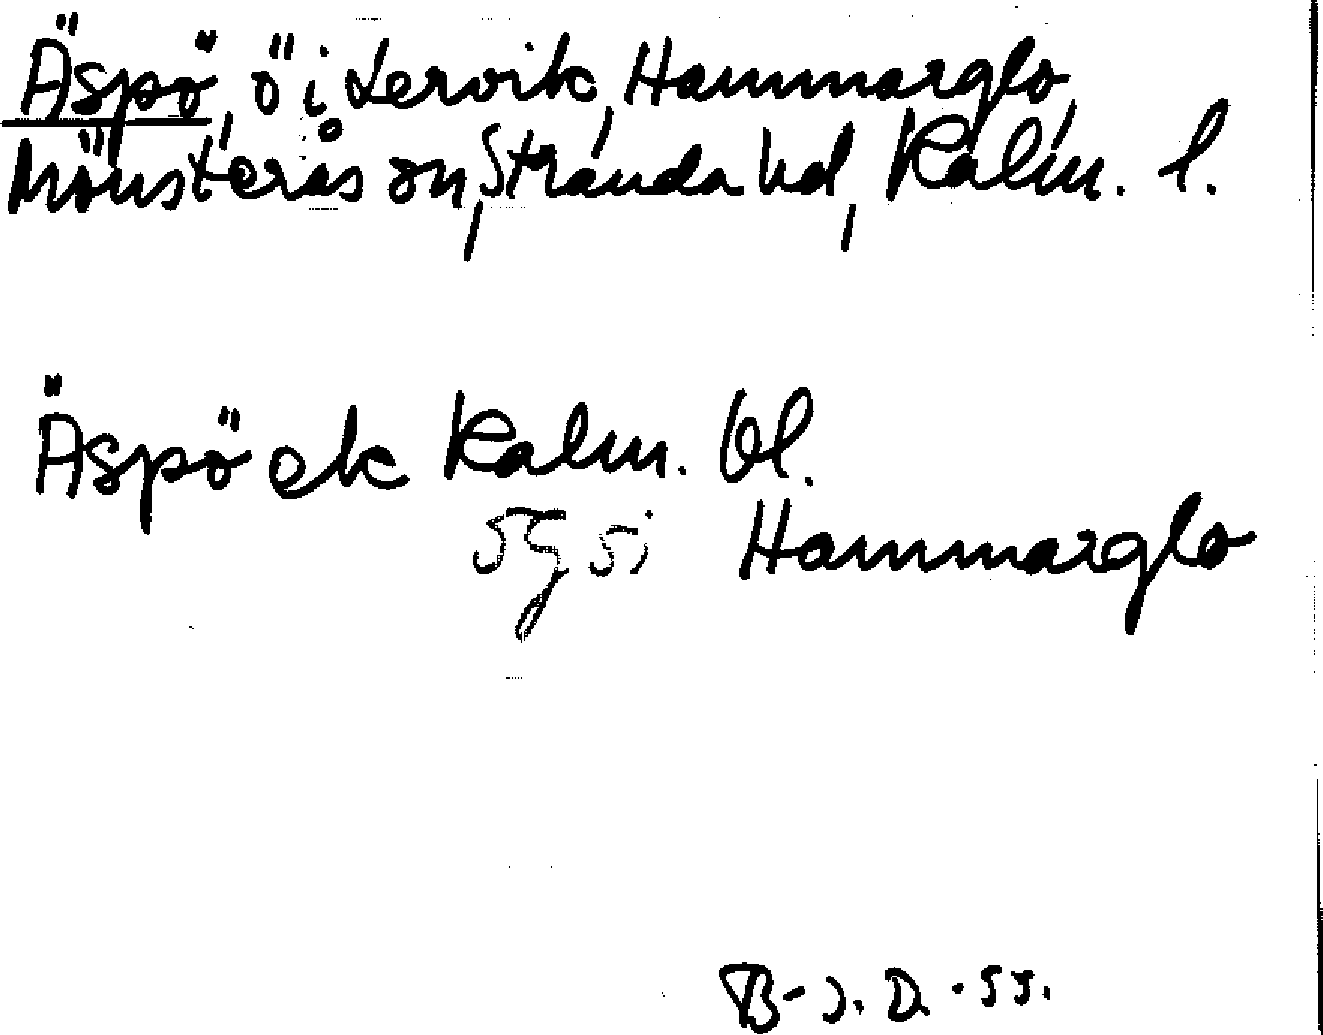 Äspö, ö i Lervik, Hammarglo,
Mönsterås sn, Stranda hd, Kalm. l.
Äspö ek Kalm. bl.
5g 5i Hammarglo
B-J. D. -55.